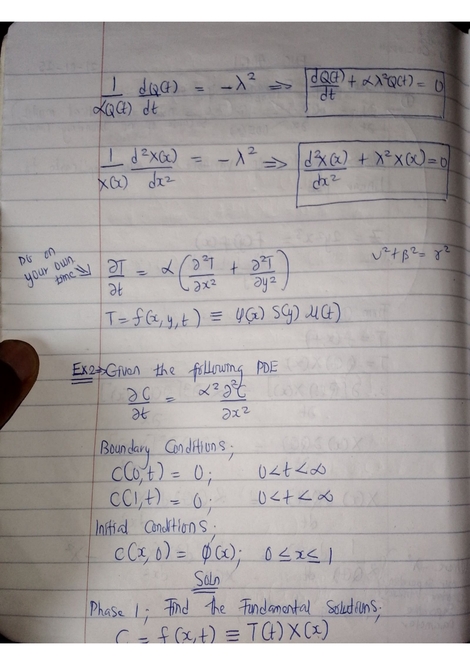 1/αQ(t) dQ(t)/dt = -λ² ⇒ dQ(t)/dt + αλ²Q(t) = 0
1/X(x) d²X(x)/dx² = -λ² ⇒ d²X(x)/dx² + λ²X(x) = 0
Do on your own time ⇒ ∂T/∂t = α(∂²T/∂x² + ∂²T/∂y²)
ν² + β² = γ²
T = f(x,y,t) ≡ φ(x) S(y) μ(t)
Ex2 → Given the following PDE
∂C/∂t = α² ∂²C/∂x²
Boundary Conditions;
C(0,t) = 0; 0<t<∞
C(1,t) = 0; 0<t<∞
Initial Conditions;
C(x,0) = φ(x); 0≤x≤1
Soln
Phase 1; Find the Fundamental Solutions;
C = f(x,t) ≡ T(t) X(x)